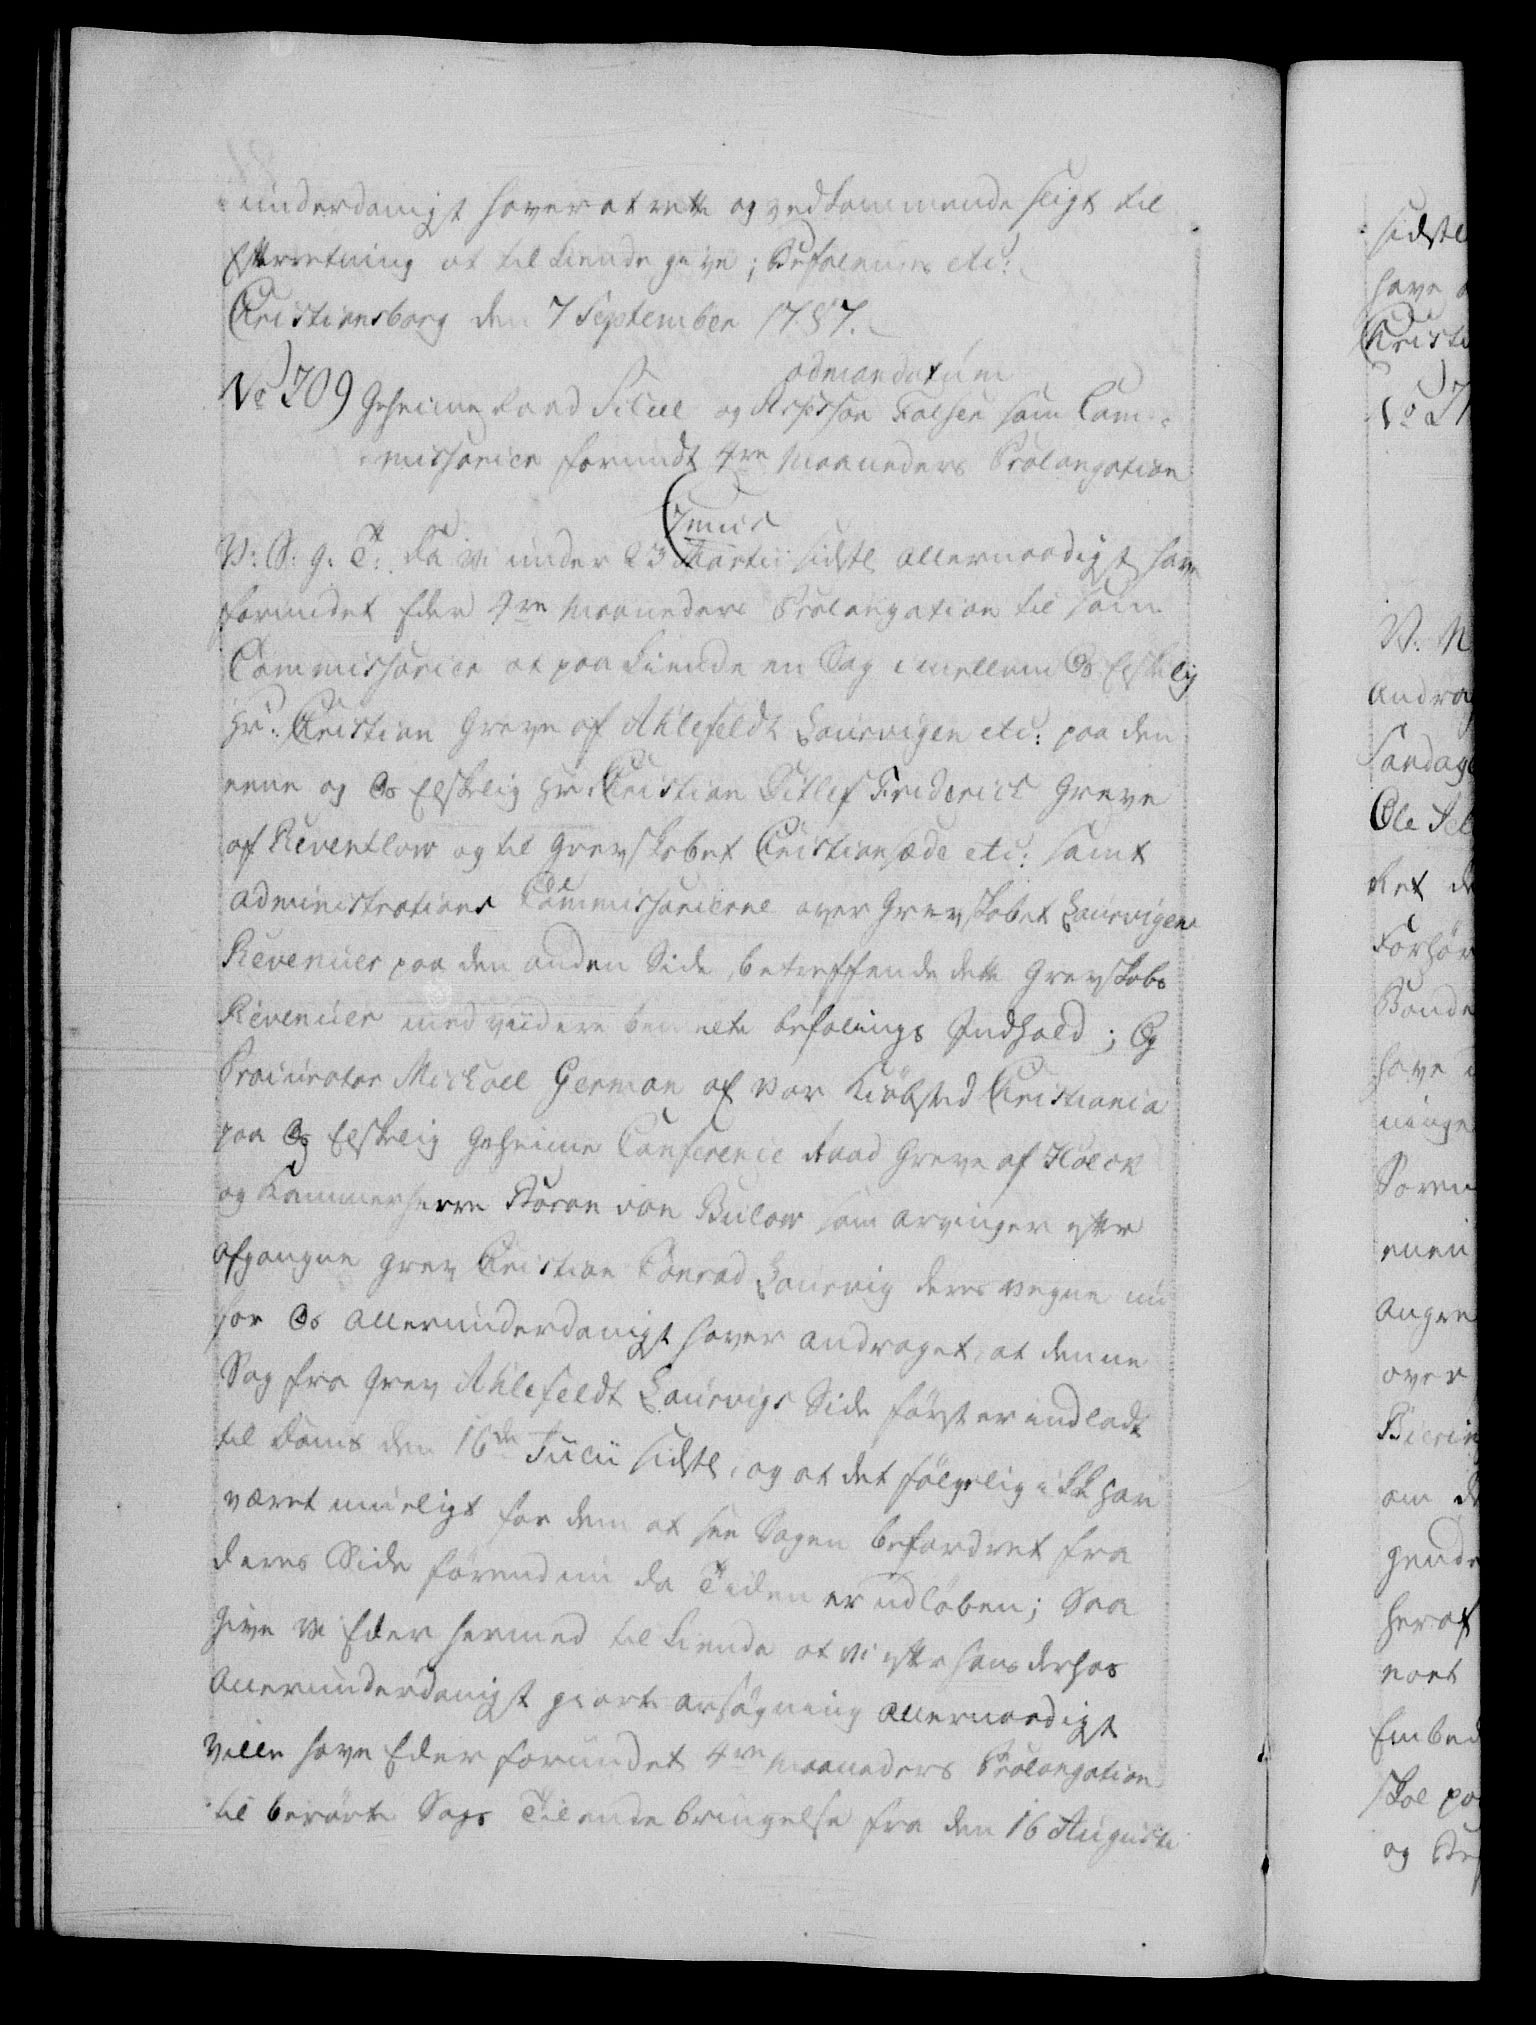 underdanigst haver at rette og vedkommende sligt til
Efterretning at tilkiende give; Befalendes etc:
Christiansborg den 7 September 1787.
No 709) Geheime Raad Scheel og Assessor Falsen som Com-
admandatum
missarier forundt 4re Maaneders Prolongation
V: S: g: T: Da Vi under 23 Martii sidstl allernaadigst have
Junii
forundet Eder 4re Maaneders Prolongation til som
Commissarier at paakiende en Sag imellem Os Elskelig
Hr: Christian Greve af Ahlefeldt Laurvigen etc: paa den
eene og Os Elskelig Hr: Christian Ditlef Friderich Greve
af Reventlow og til Grevskabet Christiansæde etc: samt
administrations Commissarierne over Grevskabet Laurvigens
Revenuer paa den anden Side, betreffende dette Grevskabs
Revenuer med viidere bemelte befalings Indhold; Og
Procurator Michael German af vor Kiøbsted Christiania
paa Os Elskelig Geheime Conference Raad Greve af Holck
og Kammerherre Baron von Bulow som arvinger efter
afgangne Grev Christian Conrad Laurvig deres vegne nu
for Os allerunderdanigst haver andraget, at denne
Sag fra Grev Ahlefeldt Laurvigs Side først er indladt
til Doms den 16de Julii sidstl, og at det følgelig ikke har
været mueligt for dem at see Sagen befordret fra
deres Side førend nu da Tiden er udløben; Saa
give Vi Eder hermed tilkiende at Vi efter hans derhos
allerunderdanigst giorte ansøgning allernaadigst
ville have Eder forundet 4re Maaneders Prolongation
til berørte Sags Tilendebringelse fra den 16 Augusti
sidstl
have
Christi
No 71
V: N
andrag
Ole
Ret
Forhør
Bonde
have
ninge
Søren
enen
angre
over
om
gende
heraf
Embed
skal paa
og